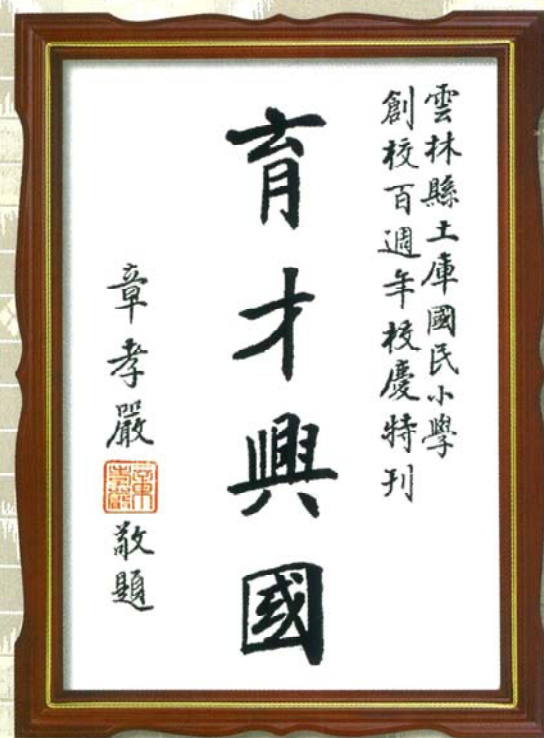 雲林縣土庫國民小學
創校百週年校慶特刊
育才興國
章孝嚴
章孝嚴
敬題